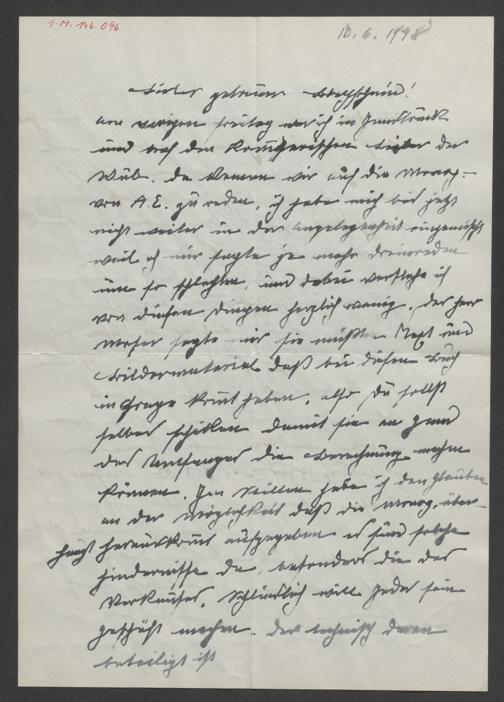 1.M.146.096
10.6.1948
Lieber getreuer
am vorigen Freitag war ich in Innsbruck
und traf den Komponisten
Da kamen wir auf die Monog.
von A.E. zu reden, ich habe mich bis jetzt
nicht weiter in der Angelegenheit eingemischt
weil ich mir sagte je mehr dreinreden
um so schlechter, und dabei verstehe ich
von diesen Dingen herzlich wenig. Der Herr
sagte mir sie müßten Text und
Bildermaterial daß bei diesem Buch
in Frage kommt haben, also Du sollst
selber schicken damit sie an Hand
des Umfanges die Berechnung machen
können. Im Stillen habe ich den Glauben
an der Möglichkeit daß die Monog. über-
haupt herauskommt aufgegeben es sind solche
Hindernisse da, besonders die des
Verkaufes. Schließlich will jeder sein
Geschäft machen. Der technisch daran
beteiligt ist